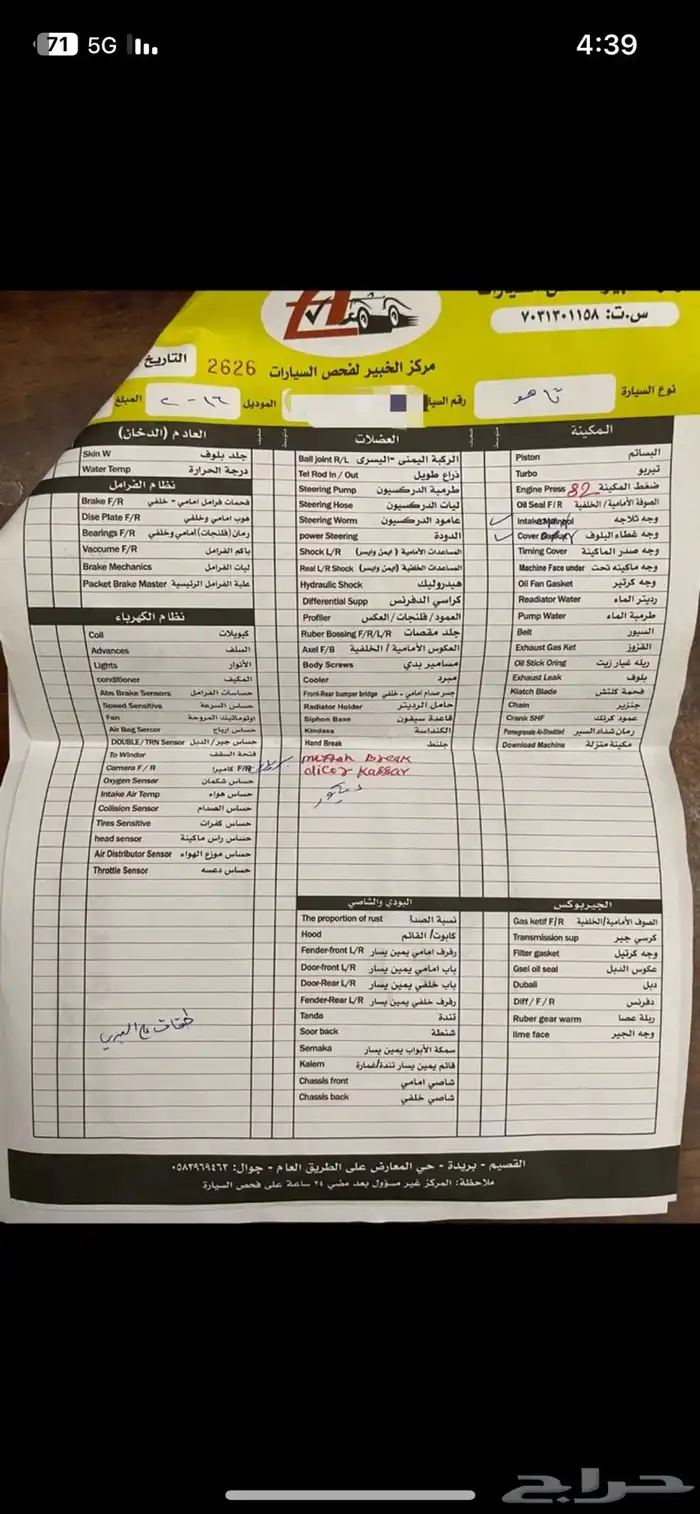 71 5G
4:39
س.ت: ٧٠٣١٣٠١١٥٨
مركز الخبير لفحص السيارات
2626
التاريخ
نوع السيارة
تاهو
رقم السيا
الموديل
٢٠١٦
المبلغ
المكينة
Piston البساتم
Turbo تيربو
Engine Press 82 ضغط المكينة
Oil Seal F/R الصوفة الأمامية/الخلفية
وجه ثلاجه
Cover وجه غطاء البلوف
Timing Cover وجه صدر الماكينة
Machine Face under وجه ماكينه تحت
Oil Fan Gasket وجه كرتير
Readiator Water رديتر الماء
Pump Water طرمبة الماء
Belt السيور
Exhaust Gas Ket القزوز
Oil Stick Oring ريله غيار زيت
Exhaust Leak بلوف
Klatch Blade فحمة كلتش
Chain جنزير
Crank SHF عمود كرنك
رمان شداد السير
Download Machine مكينة منزلة
العضلات
Ball joint R/L الركبة اليمنى - اليسرى
Tel Rod In / Out ذراع طويل
Steering Pump طرمبة الدركسيون
Steering Hose ليات الدركسيون
Steering Worm عامود الدركسيون
power Steering الدودة
Shock L/R المساعدات الأمامية (ايمن وايسر)
Real L/R Shock المساعدات الخلفية (ايمن وايسر)
Hydraulic Shock هيدروليك
Differential Supp كراسي الدفرنس
Profiler العمود/ فلنجات/ العكس
Ruber Bossing F/R/L/R جلد مقصات
Axel F/B العكوس الأمامية / الخلفية
Body Screws مسامير بدي
Cooler مبرد
Front-Rear bumper bridge جسر صدام امامي - خلفي
Radiator Holder حامل الرديتر
Siphon Base قاعدة سيفون
Kindasa الكنداسة
Hand Break جلنط
break
kassar
ديكور
العادم (الدخان)
Skin W جلد بلوف
Water Temp درجة الحرارة
نظام الفرامل
Brake F/R فحمات فرامل امامي - خلفي
Dise Plate F/R هوب امامي وخلفي
Bearings F/R رمان (فلنجات) امامي وخلفي
Vaccume F/R باكم الفرامل
Brake Mechanics ليات الفرامل
Packet Brake Master علبة الفرامل الرئيسية
نظام الكهرباء
Coil كبويلات
Advances السلف
Lights الأنوار
conditioner المكيف
Abs Brake Sensors حساسات الفرامل
Speed Sensitive حساس السرعة
Fan اوتوماتيك المروحة
Air Bag Sercor حساس ارباح
DOUBLE/TRN Sensor حساس جير/ الدبل
To Windor فتحة السقف
Camera F / R كاميرا F/R
Oxygen Sensar حساس شكمان
Intake Air Temp حساس هواء
Collision Sensor حساس الصدام
Tires Sensitive حساس كفرات
head sensor حساس راس ماكينة
Air Distributor Sensor حساس موزع الهواء
Throttle Sensor حساس دعسه
البودي والشاصي
The proportion of rust نسبة الصدأ
Hood كابوت/ القائم
Fender-front L/R رفرف امامي يمين يسار
Door-front L/R باب امامي يمين يسار
Door-Rear L/R باب خلفي يمين يسار
Fender-Rear L/R رفرف خلفي يمين يسار
Tanda تندة
Soor back شنطة
Semaka سمكة الأبواب يمين يسار
Kalem قائم يمين يسار تندة/غمارة
Chassis front شاصي امامي
Chassis back شاصي خلفي
الجيربوكس
Gas ketif F/R الصوف الأمامية/الخلفية
Transmission sup كرسي جير
Filter gasket وجه كرتيل
Gsel oil seal عكوس الدبل
Dubali دبل
Diff / F / R دفرنس
Ruber gear warm ريلة عصا
lime face وجه الجير
القصيم - بريدة - حي المعارض على الطريق العام - جوال: ٠٥٨٣٩٦٩٤٦٣
ملاحظة: المركز غير مسؤول بعد مضي ٢٤ ساعة على فحص السيارة
حراج